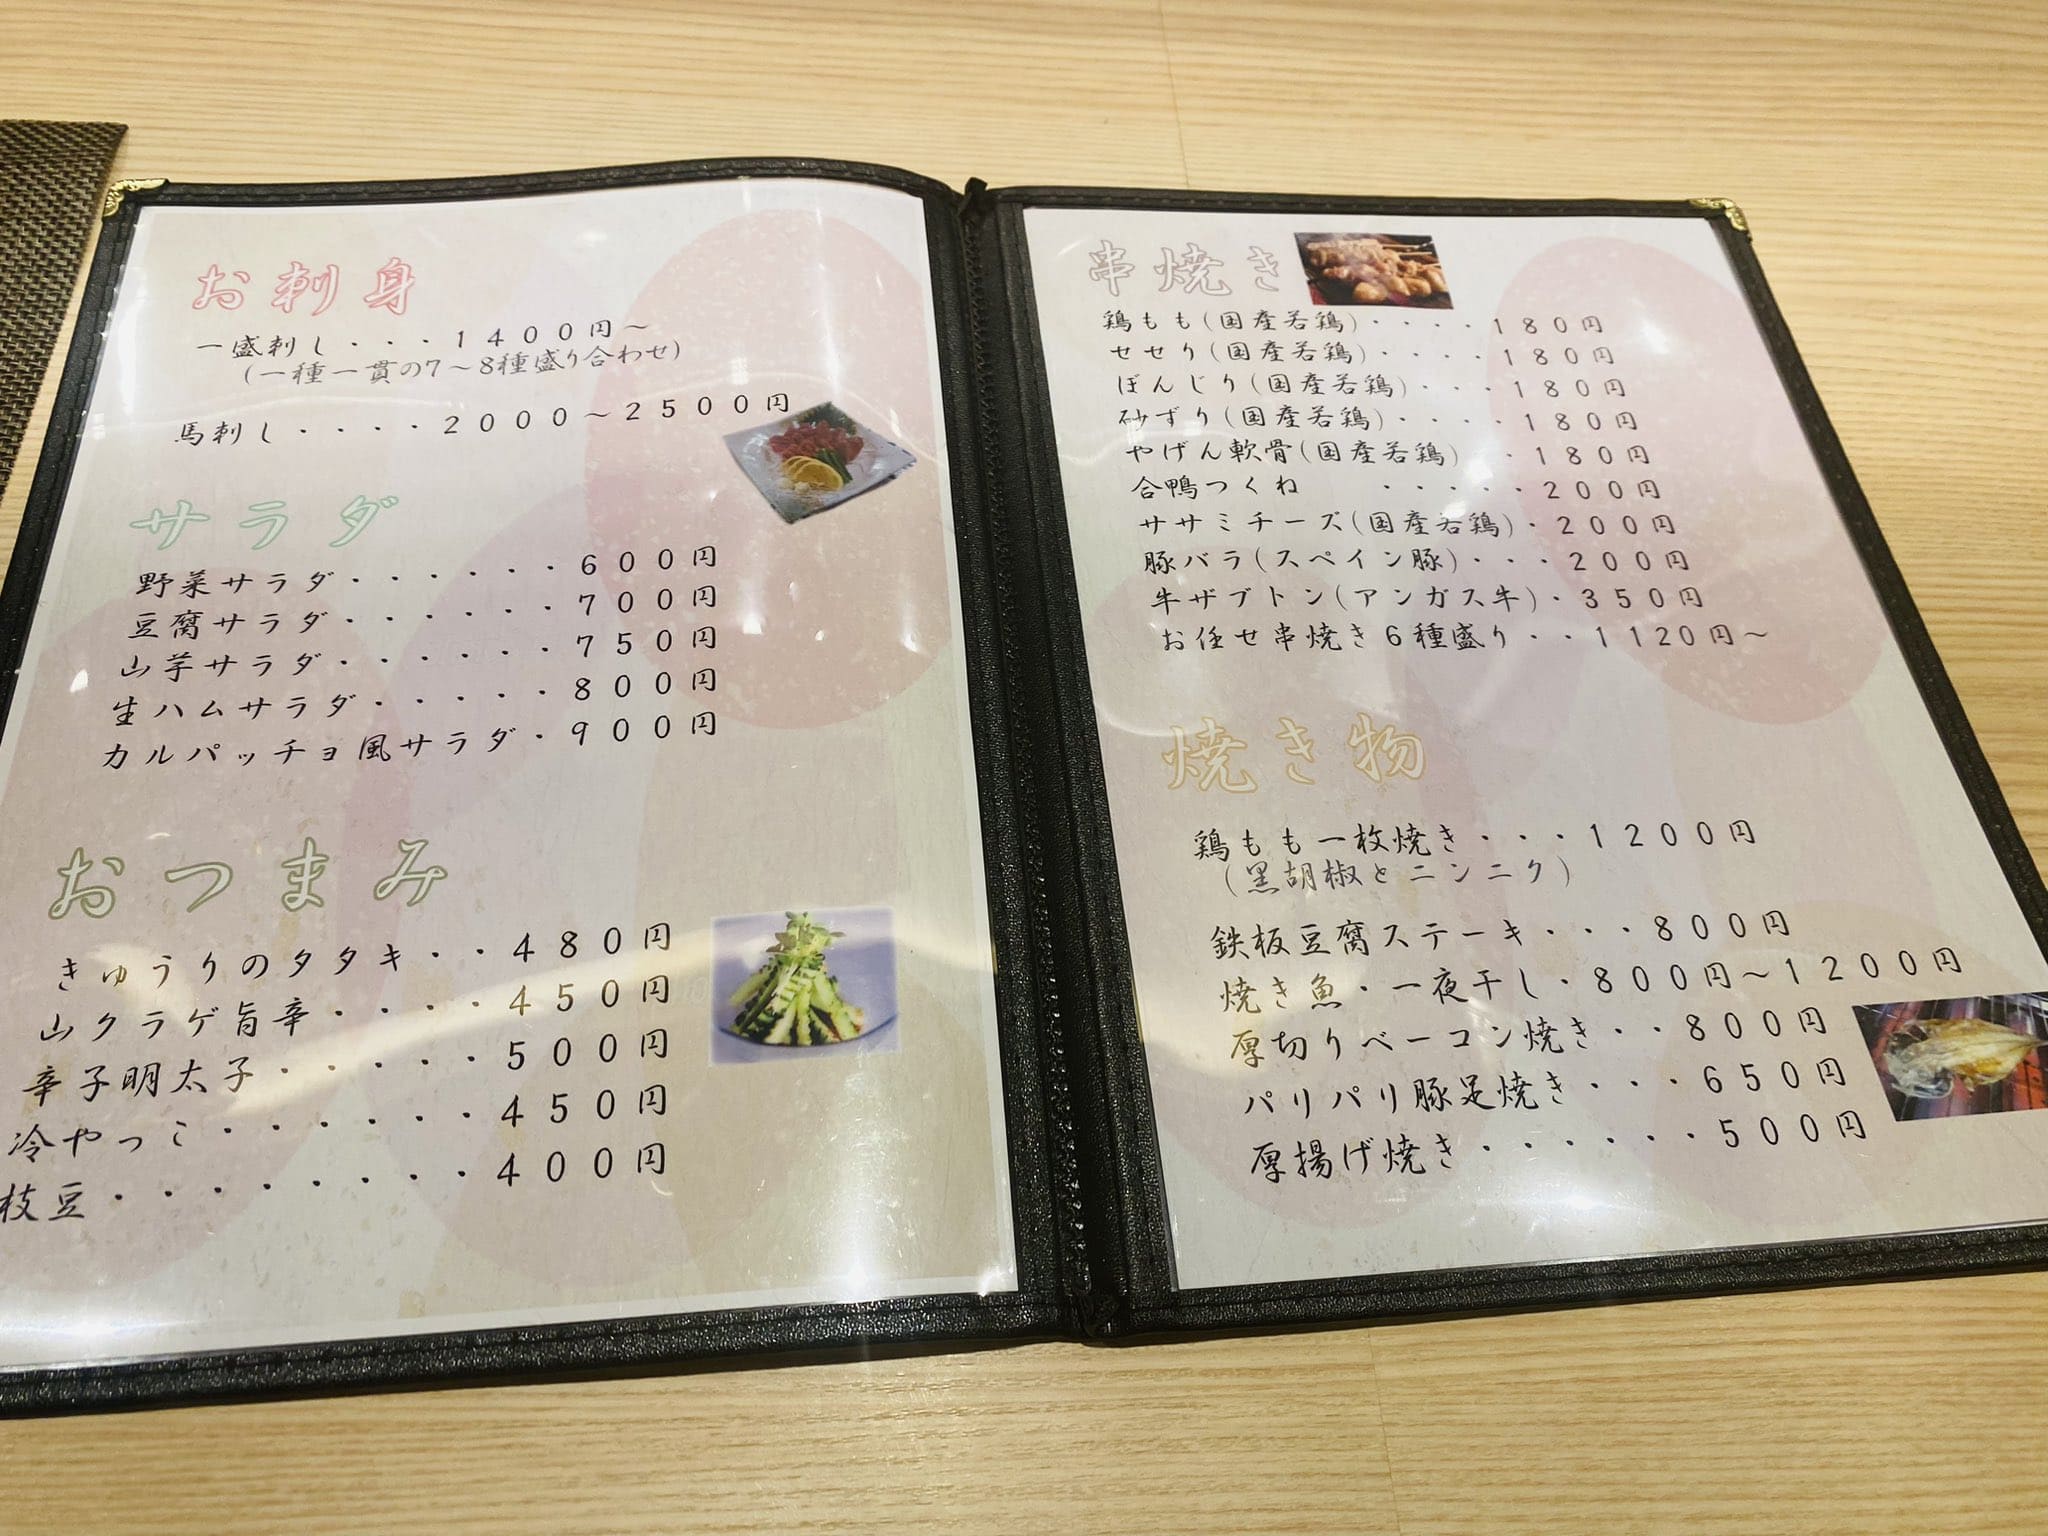 お刺身
一盛刺し・・・1400円～
(一種一貫の7～8種盛り合わせ)
馬刺し・・・・2000～2500円
サラダ
野菜サラダ・・・・・・600円
豆腐サラダ・・・・・・700円
山芋サラダ・・・・・・750円
生ハムサラダ・・・・・800円
カルパッチョ風サラダ・900円
おつまみ
きゅうりのタタキ・・480円
山クラゲ旨辛・・・・450円
辛子明太子・・・・・500円
冷やっこ・・・・・・450円
枝豆・・・・・・・・400円
串焼き
鶏もも(国産若鶏)・・・・180円
せせり(国産若鶏)・・・・180円
ぼんじり(国産若鶏)・・・180円
砂ずり(国産若鶏)・・・・180円
やげん軟骨(国産若鶏)・・180円
合鴨つくね・・・・・200円
ササミチーズ(国産若鶏)・200円
豚バラ(スペイン豚)・・・200円
牛ザブトン(アンガス牛)・350円
お任せ串焼き6種盛り・・1120円～
焼き物
鶏もも一枚焼き・・・1200円
(黒胡椒とニンニク)
鉄板豆腐ステーキ・・・800円
焼き魚・一夜干し・800円～1200円
厚切りベーコン焼き・・800円
パリパリ豚足焼き・・・650円
厚揚げ焼き・・・・・・500円